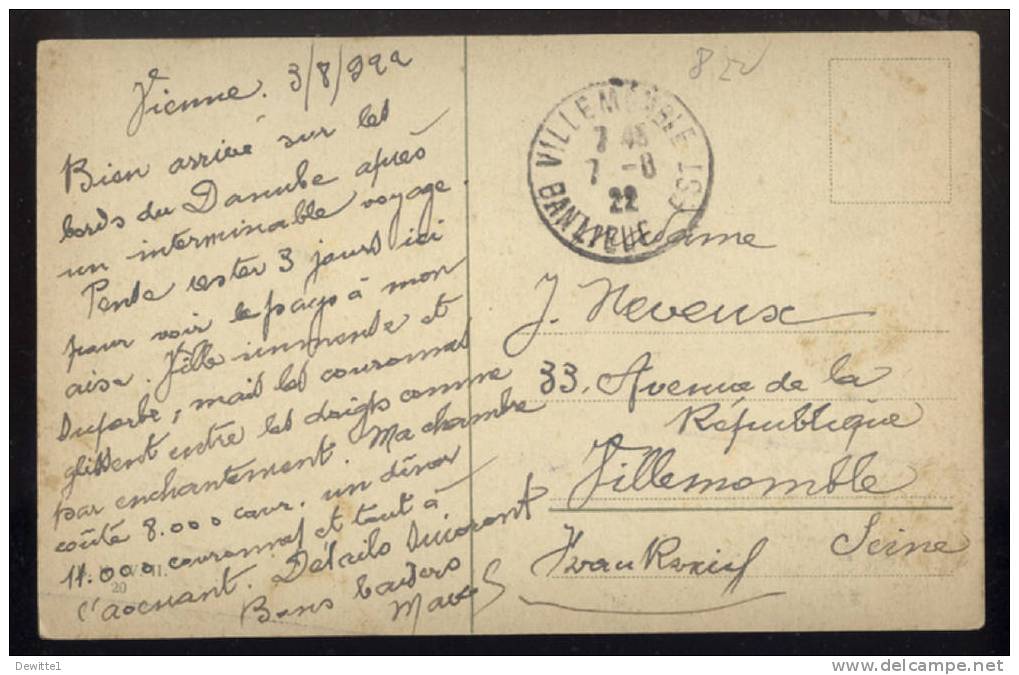 Vienne. 3/8/922
Bien arrivé sur les
bords du Danube après
un interminable voyage.
Pense rester 3 jours ici
pour voir le pays à mon
aise. Ville immense et
superbe, mais les couronnes
glissent entre les doigts comme
par enchantement. Ma chambre
coûte 8.000 cour. un dîner
11.000 couronnes et tout à
l'avenant. Détails suivront
Bons baisers
20
8 22
VILLEMOMBLE EST
7 45
7 -8
22
Madame
J. Neveux
33, Avenue de la
République
Villemomble
Seine
Dewitte1
delcampe.net